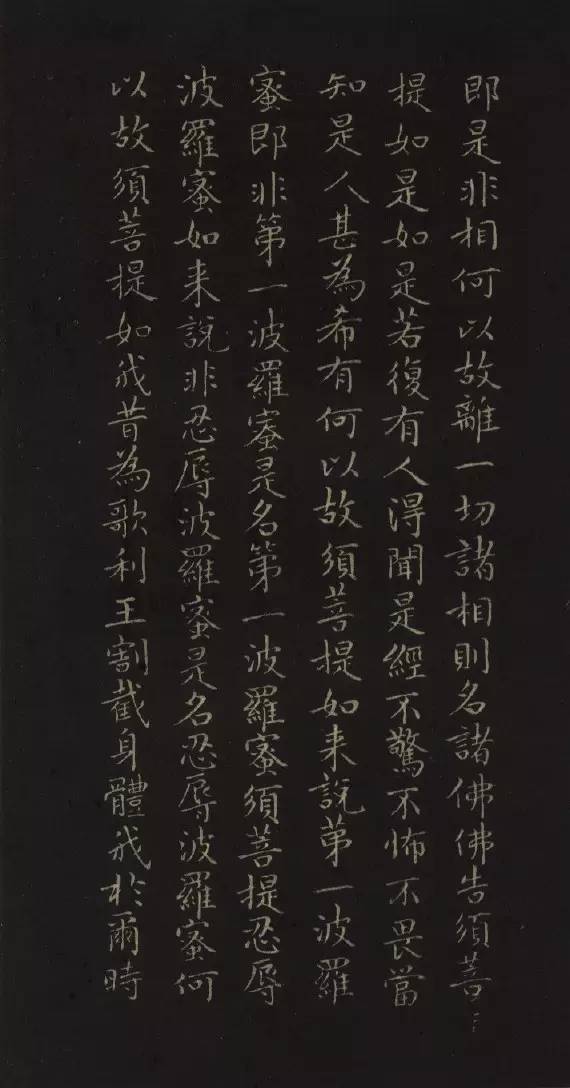 即是非相何以故離一切諸相則名諸佛佛告須菩
提如是如是若復有人得聞是經不驚不怖不畏當
知是人甚為希有何以故須菩提如来說第一波羅
蜜即非第一波羅蜜是名第一波羅蜜須菩提忍辱
波羅蜜如来說非忍辱波羅蜜是名忍辱波羅蜜何
以故須菩提如我昔為歌利王割截身體我於爾時